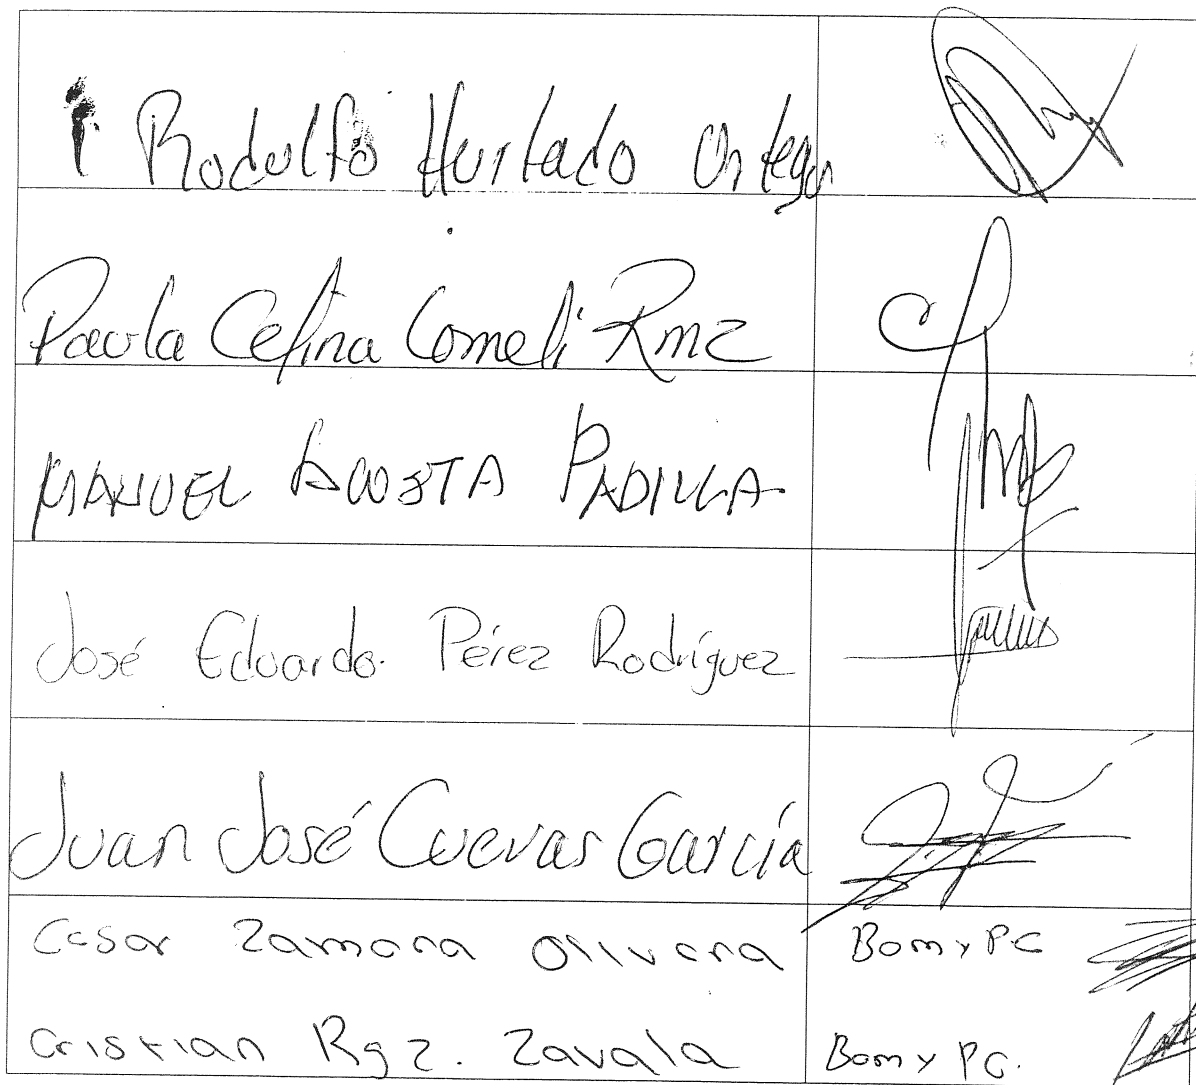 Rodolfo Hurtado Ortega
Paula Celina Comeli Rmz
MANUEL ACOSTA PADILLA
José Eduardo Pérez Rodríguez
Juan José Cuevas García
Cesar Zamora Olivera Bom y PC
Cristian Rgz. Zavala Bom y PC.